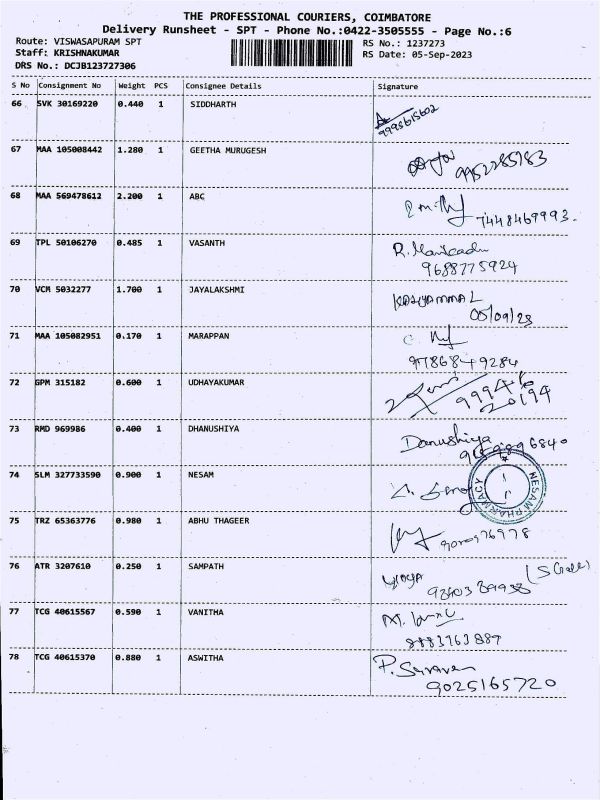 THE PROFESSIONAL COURIERS, COIMBATORE
Delivery Runsheet - SPT - Phone No.:0422-3505555 - Page No.:6
Route: VISWASAPURAM SPT
Staff: KRISHNAKUMAR
DRS No.: DCJB123727306
RS No.: 1237273
RS Date: 05-Sep-2023
S No Consignment No Weight PCS Consignee Details Signature
66 SVK 30169220 0.440 1 SIDDHARTH
9995615602
67 MAA 105008442 1.280 1 GEETHA MURUGESH
9952285183
68 MAA 569478612 2.200 1 ABC
7448469993.
69 TPL 50106270 0.485 1 VASANTH
R. Manicadu
9688775924
70 VCM 5032277 1.700 1 JAYALAKSHMI
KALIYAMMAL
05/09/23
71 MAA 105082951 0.170 1 MARAPPAN
9786849284
72 GPM 315182 0.600 1 UDHAYAKUMAR
99946
20194
73 RMD 969986 0.400 1 DHANUSHIYA
Danushiya
74 SLM 327733590 0.900 1 NESAM
NESAM PHARMACY
75 TRZ 65363776 0.980 1 ABHU THAGEER
76 ATR 3207610 0.250 1 SAMPATH
77 TCG 40615567 0.590 1 VANITHA
8883763887
78 TCG 40615370 0.880 1 ASWITHA
P. Saravan
9025165720